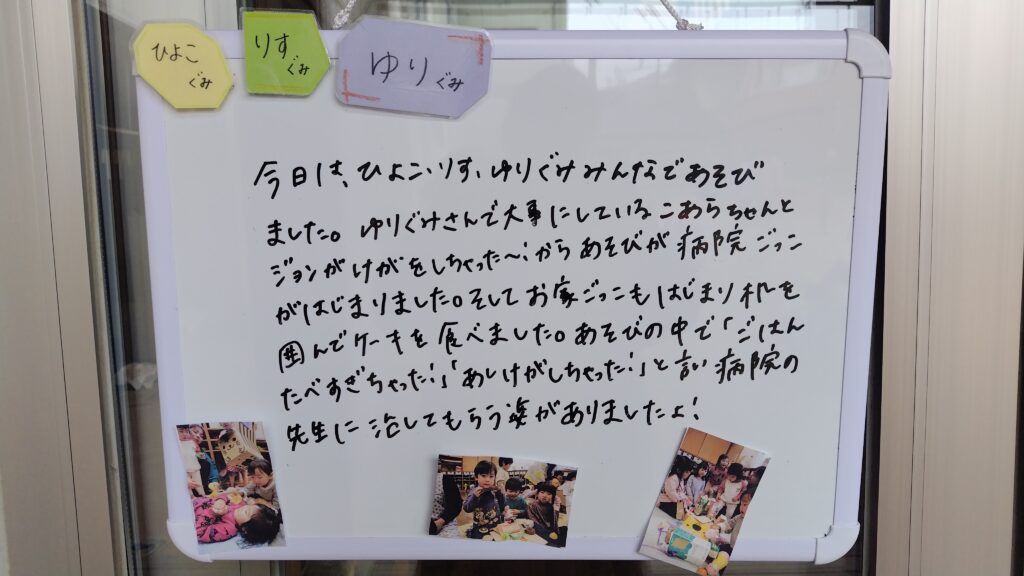 ひよこぐみ
りすぐみ
ゆりぐみ
今日は、ひよこ、りす、ゆりぐみみんなであそび
ました。ゆりぐみさんで大事にしているこあらちゃんと
ジョンがけがをしちゃった〜!からあそびが病院ごっこ
がはじまりました。そしてお家ごっこもはじまり机を
囲んでケーキを食べました。あそびの中で「ごはん
たべすぎちゃった!」「あしけがしちゃった!」と言い病院の
先生に治してもらう姿がありましたよ!